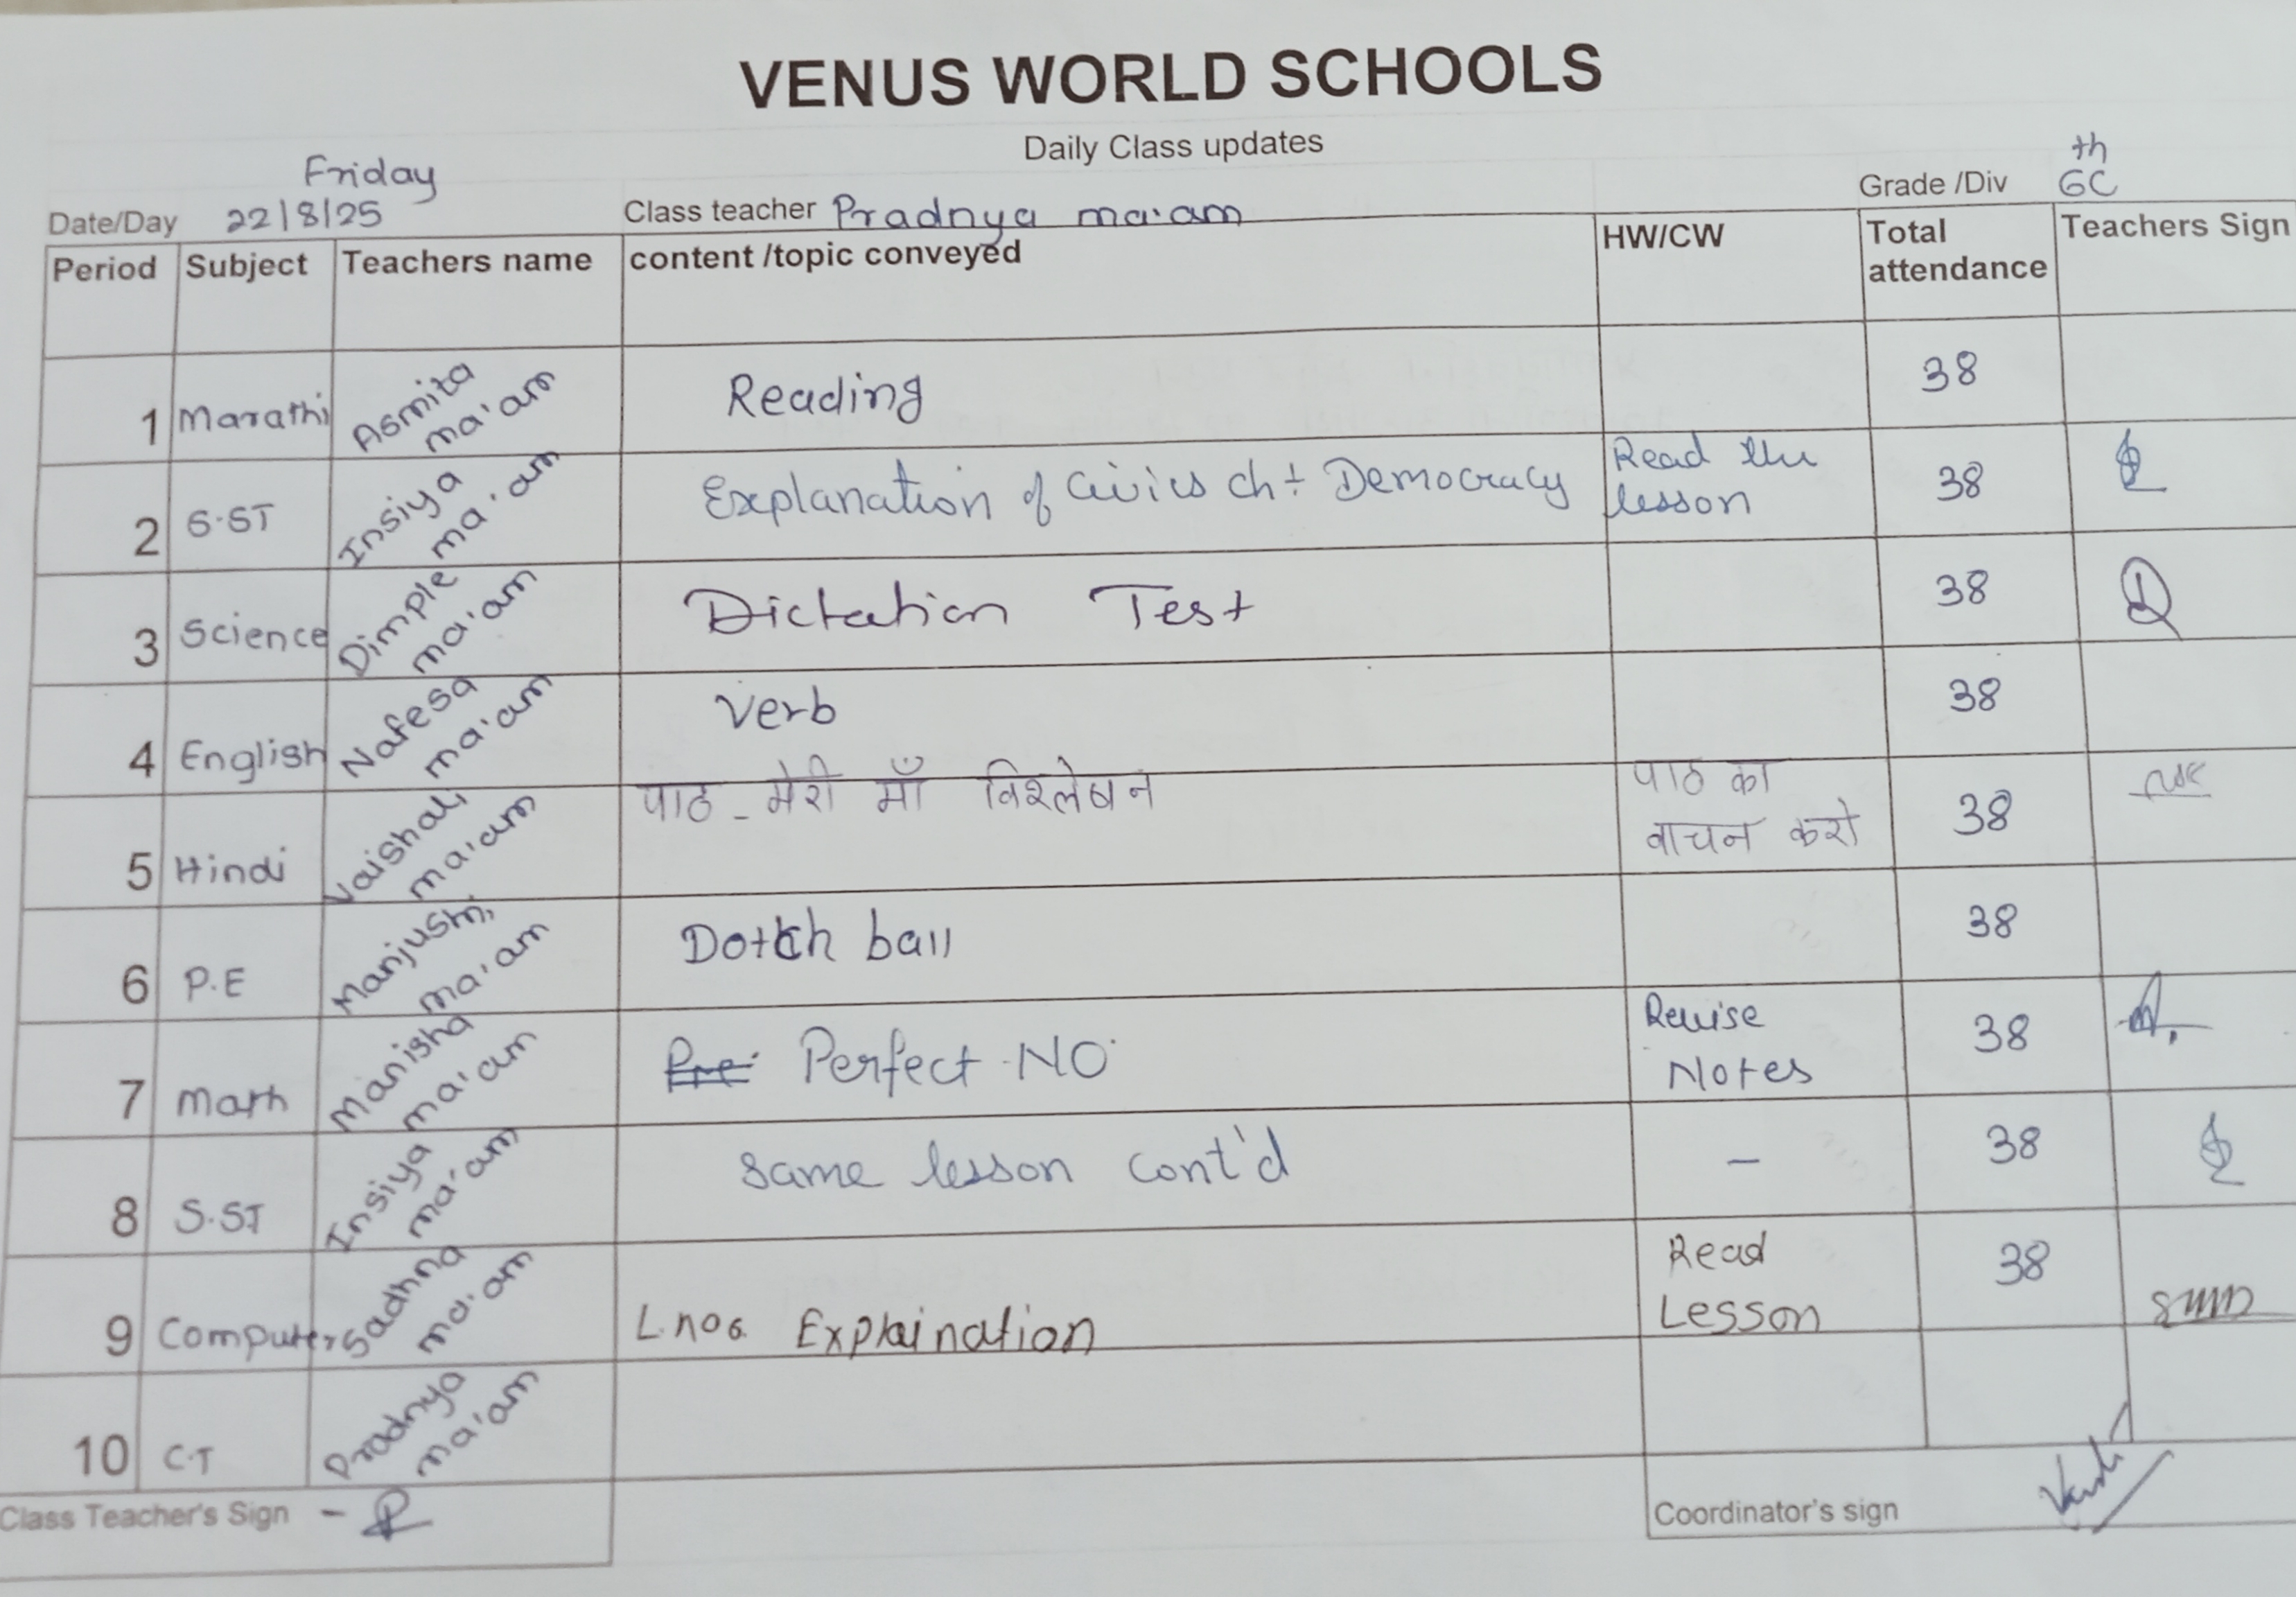 VENUS WORLD SCHOOLS
Daily Class updates
Friday
Date/Day 22/8/25 Class teacher Pradnya ma'am Grade /Div 6th C
Period Subject Teachers name content /topic conveyed HW/CW Total attendance Teachers Sign
1 Marathi Asmita ma'am Reading 38
2 S.ST Insiya ma'am Explanation of Civics ch: Democracy Read the lesson 38
3 Science Dimple ma'am Dictation Test 38
4 English Nafesa ma'am Verb 38
5 Hindi Vaishali ma'am पाठ - मेरी माँ विश्लेषन पाठ का वाचन करो 38
6 P.E Manjushri ma'am Dotch ball 38
7 Math Manisha ma'am Perfect NO Revise Notes 38
8 S.ST Insiya ma'am Same lesson cont'd - 38
9 Computer Sadhna ma'am L.no 6. Explaination Read Lesson 38
10 C.T Pradnya ma'am
Class Teacher's Sign -
Coordinator's sign